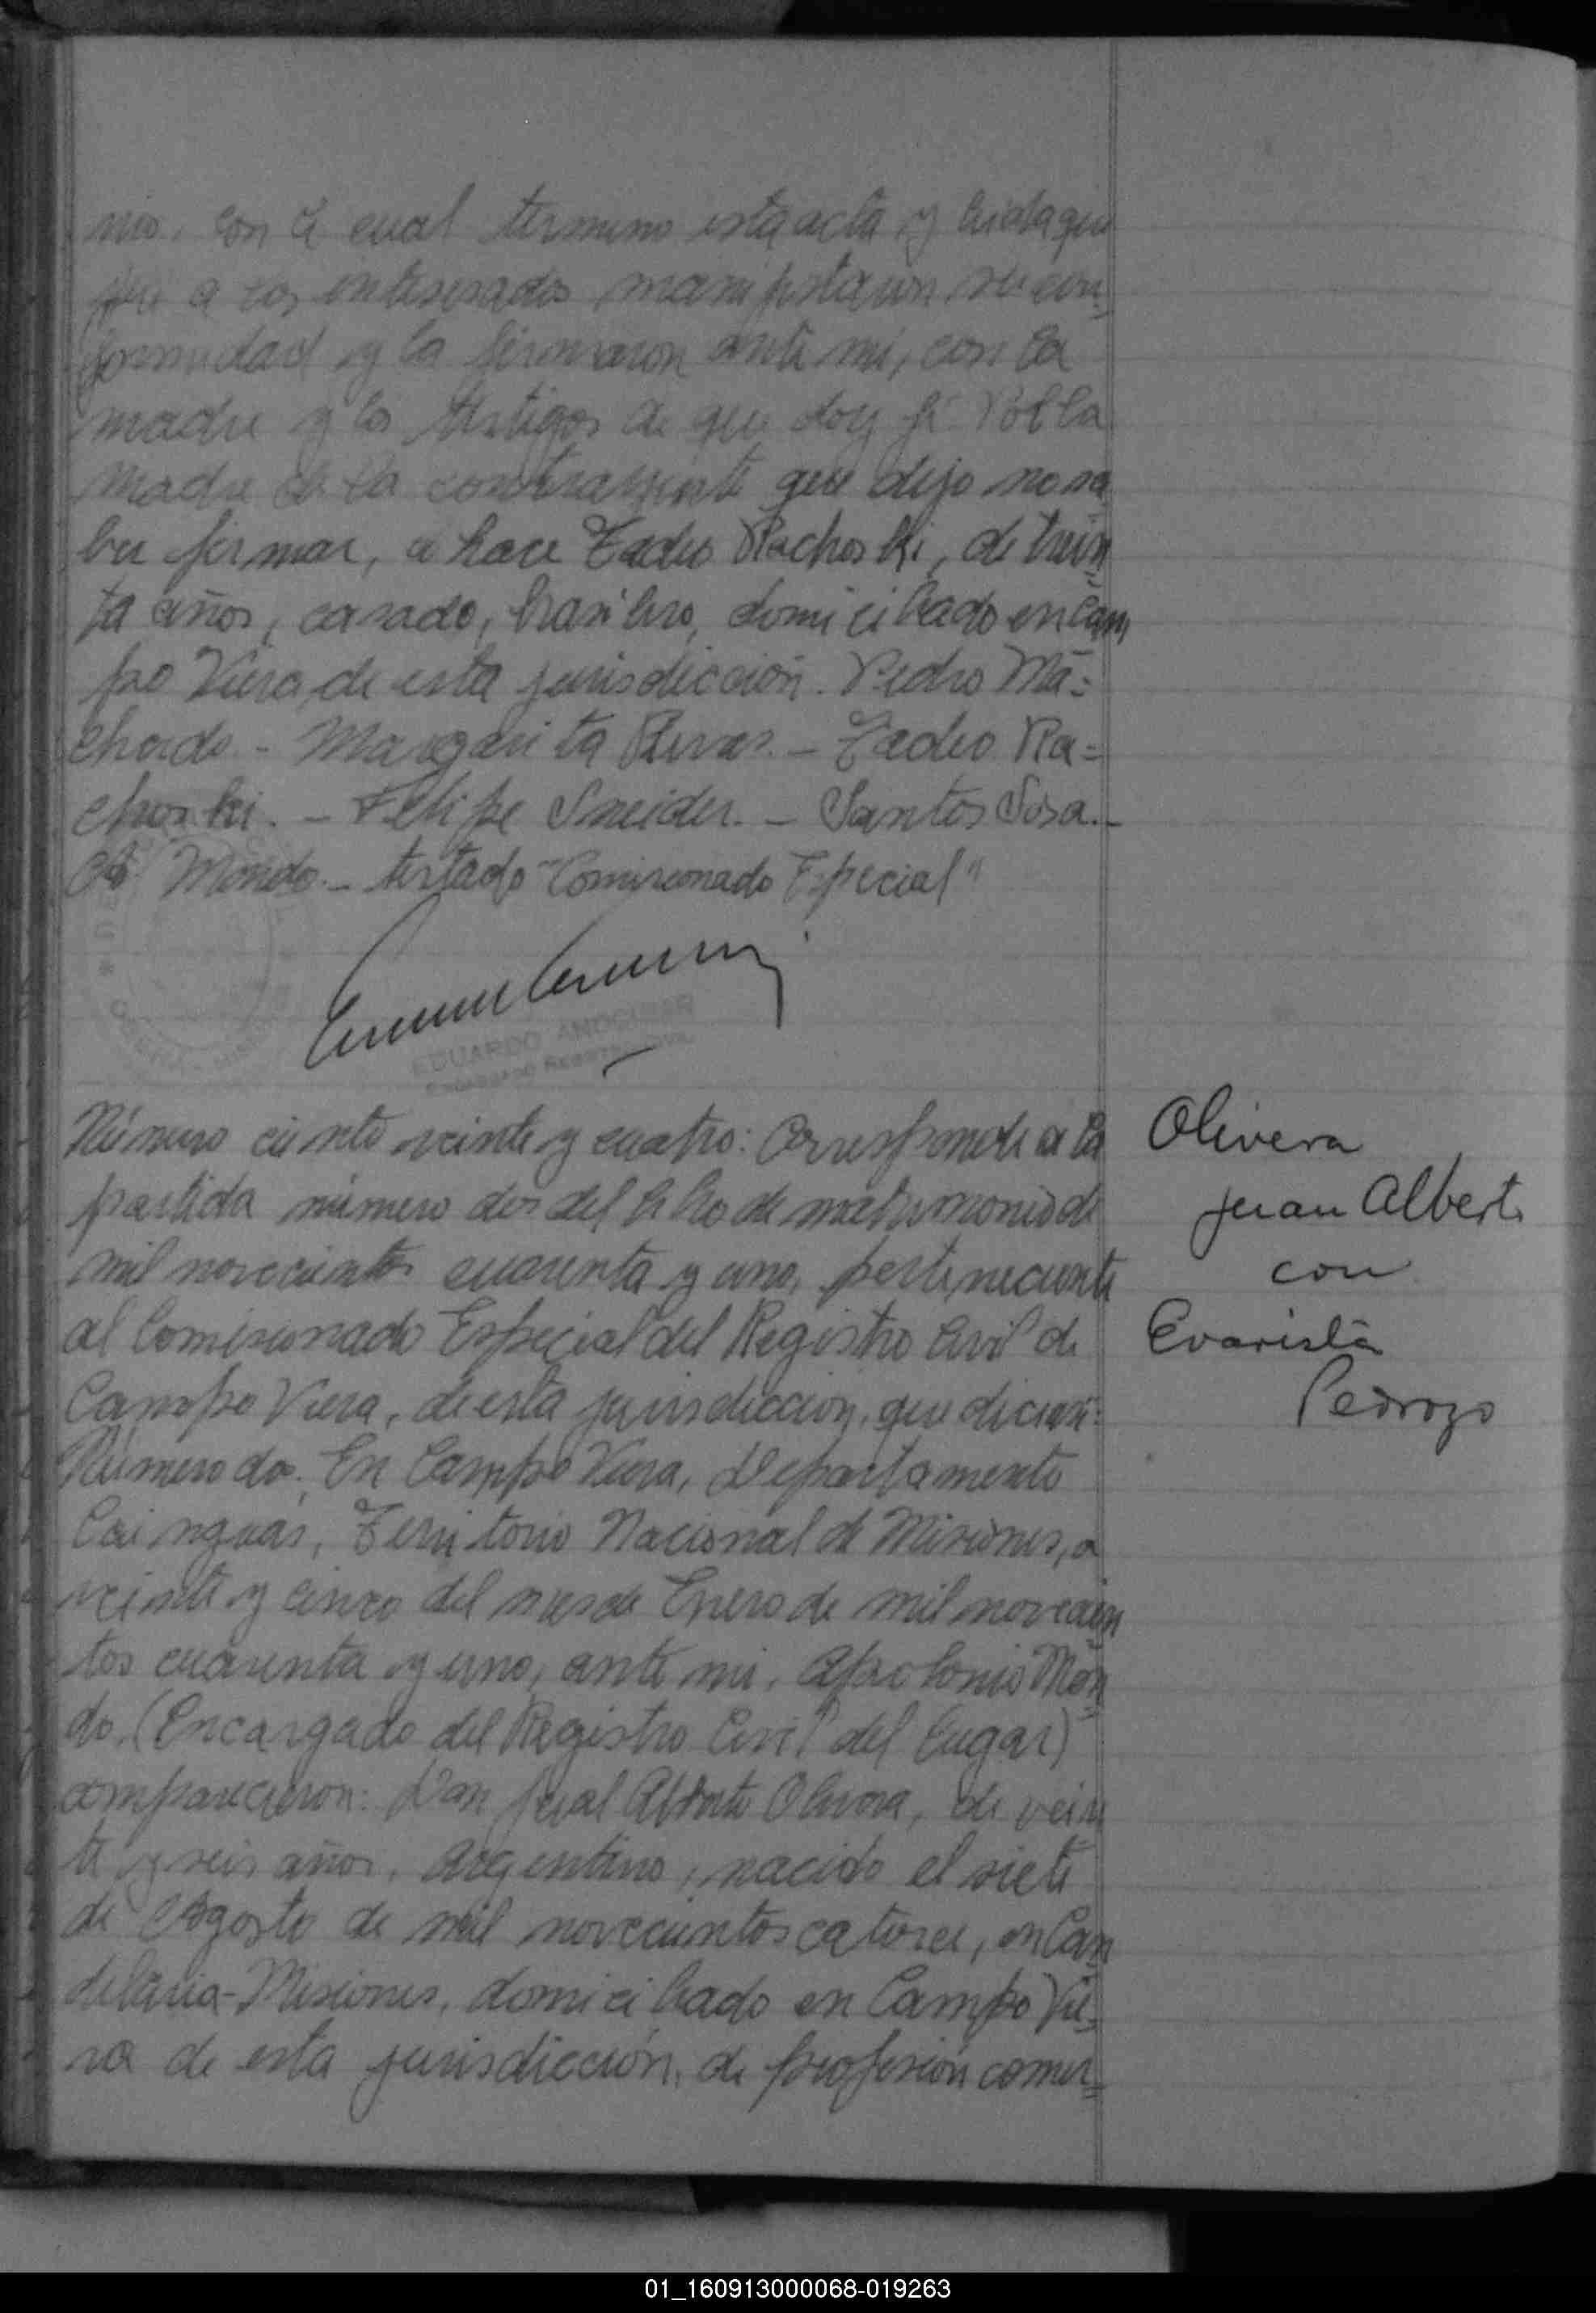 nio, con el cual termino esta acta y leida que
fue a los interesados manifestaron su con=
formidad y la firmaron ante mi, con la
madre y los testigos de que doy fé. Por la
madre de la contrayente que dijo no sa
ber firmar, lo hace Tadeo Rachoski, de trein=
ta años, casado, brasilero, domiciliado en Cam
po Viera, de esta jurisdicción. Pedro Ma=
chado - Margarita Rivas. - Tadeo Ra=
choski. - Felipe Sneider. - Santos Sosa. -
Ap. Mondo. - testado "Comisionado Especial"
EDUARDO AMOCHIAR
Número ciento veinte y cuatro: Corresponde a la
partida número dos del libro de matrimonio de
mil novecientos cuarenta y uno, perteneciente
al Comisionado Especial del Registro Civil de
Campo Viera, de esta jurisdiccion, que dice asi:
Número dos. En Campo Viera, Departamento
Cainguas, Territorio Nacional de Misiones, a
veinte y cinco del mes de Enero de mil novecien
tos cuarenta y uno, ante mi, Apolonio Mon=
do, (Encargado del Registro Civil del Lugar)
comparecieron: Don Jual Alberto Olivera, de vein
te y seis años, Argentino, nacido el siete
de Agosto de mil novecientos catorce, en Can=
delaria-Misiones, domiciliado en Campo Vie=
ra de esta jurisdicción, de profesión comer=
Olivera
Juan Alberto
con
Evarista
Pedrozo
01_160913000068-019263